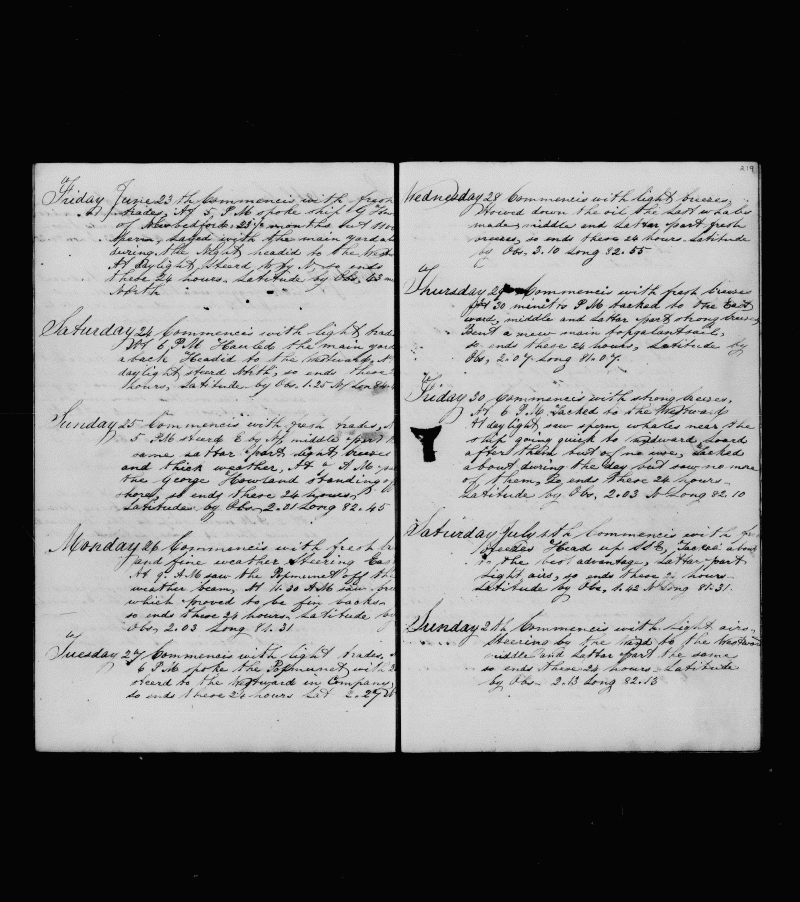 Friday June 23th Commencis with fresh
trades, At 5, P.M spoke ship G
of Newbedford 23½ months out
sperm, Layed with the main yard
during the Night headid to the
At daylight Steard by N, so ends
these 24 hours, Latitude by Obs, 43
North
Saturday 24 Commencis with light
At 6 P.M Hauled the main yard
aback Headid to the Westward,
daylight steard North, so ends these
hours, Latitude by Obs. 1.25 N Lon 84
Sunday 25 Commencis with fresh trades,
5 P.M steard E by N, middle part
same Latter part light breezes
and thick weather, At A.M
the George Howland standing
shore, so ends these 24 hours,
Latitude by Obs, 2.01 Long 82.45
Monday 26 Commencis with fresh
and fine weather Steering
At 9 A.M saw the off the
weather beam, At 11.30 A.M saw
which proved to be fin backs
so ends these 24 hours Latitude by
Obs, 2.03 Long 81.31
Tuesday 27 Commencis with light trades,
6 P.M spoke the with
steerd to the Westward in Company,
so ends these 24 hours Lat 2.27
219
Wednesday 28 Commencis with light breezes,
Stowed down the oil the Last whales
made middle and Latter part fresh
breezes, so ends these 24 hours Latitude
by Obs, 3.10 Long 82.55
Thursday 29 Commencis with fresh breezes
At 30 minits P.M tacked to the East
ward, middle and Latter part strong breezes
Bent a new main topgalant sail,
so ends these 24 hours, Latitude by
Obs, 2.07 Long 81.07
Friday 30 Commencis with strong breezes,
At 6 P.M. Tacked to the Westward
At daylight saw sperm whales near the
ship going quick to windward Loard
after them but of no use, Tacked
about during the day but saw no more
of them, So ends these 24 hours
Latitude by Obs. 2.03 N Long 82.10
Saturday July 1th Commencis with
breezes Head up SSE, Tacked about
to the best advantage, Latter part
Light airs, so ends these 24 hours
Latitude by Obs, 1.42 N Long 81.31.
Sunday 2th Commencis with Light airs
Steering by the wind to the Westward
middle and Latter part the same
so ends these 24 hours Latitude
by Obs 2.13 Long 82.13